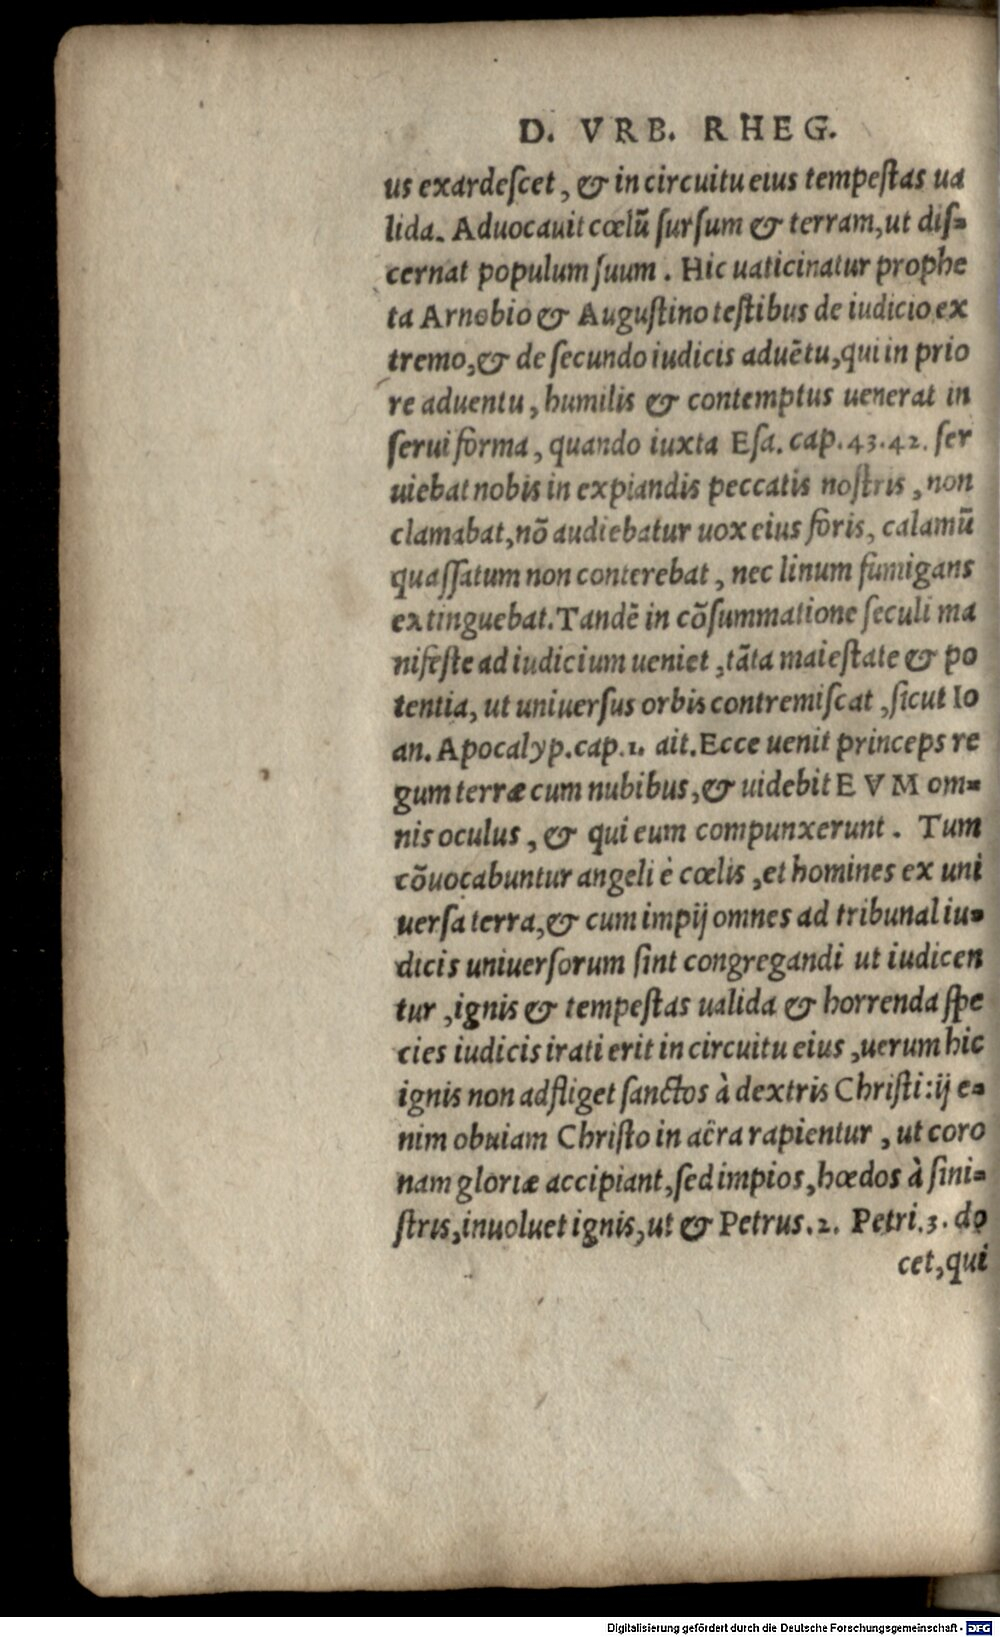 D. VRB. RHEG.
us exardeſcet, & in circuitu eius tempeſtas ua
lida. Aduocauit cœlū ſurſum & terram, ut diſ=
cernat populum ſuum. Hic uaticinatur prophe
ta Arnobio & Auguſtino teſtibus de iudicio ex
tremo, & de ſecundo iudicis aduētu, qui in prio
re aduentu, humilis & contemptus uenerat in
ſerui forma, quando iuxta Eſa. cap. 43. 42. ſer
uiebat nobis in expiandis peccatis noſtris, non
clamabat, nō audiebatur uox eius foris, calamū
quaſſatum non conterebat, nec linum fumigans
extinguebat. Tandē in cōſummatione ſeculi ma
nifeſte ad iudicium ueniet, tāta maieſtate & po
tentia, ut uniuerſus orbis contremiſcat, ſicut Io
an. Apocalyp. cap. 1. ait. Ecce uenit princeps re
gum terræ cum nubibus, & uidebit EVM om=
nis oculus, & qui eum compunxerunt. Tum
cōuocabuntur angeli è cœlis, et homines ex uni
uerſa terra, & cum impij omnes ad tribunal iu=
dicis uniuerſorum ſint congregandi ut iudicen
tur, ignis & tempeſtas ualida & horrenda ſpe
cies iudicis irati erit in circuitu eius, uerum hic
ignis non adfliget ſanctos à dextris Chriſti: ij e=
nim obuiam Chriſto in aëra rapientur, ut coro
nam gloriæ accipiant, ſed impios, hœdos à ſini=
ſtris, inuoluet ignis, ut & Petrus. 2. Petri. 3. do
cet, qui
Digitalisierung gefördert durch die Deutsche Forschungsgemeinschaft - DFG